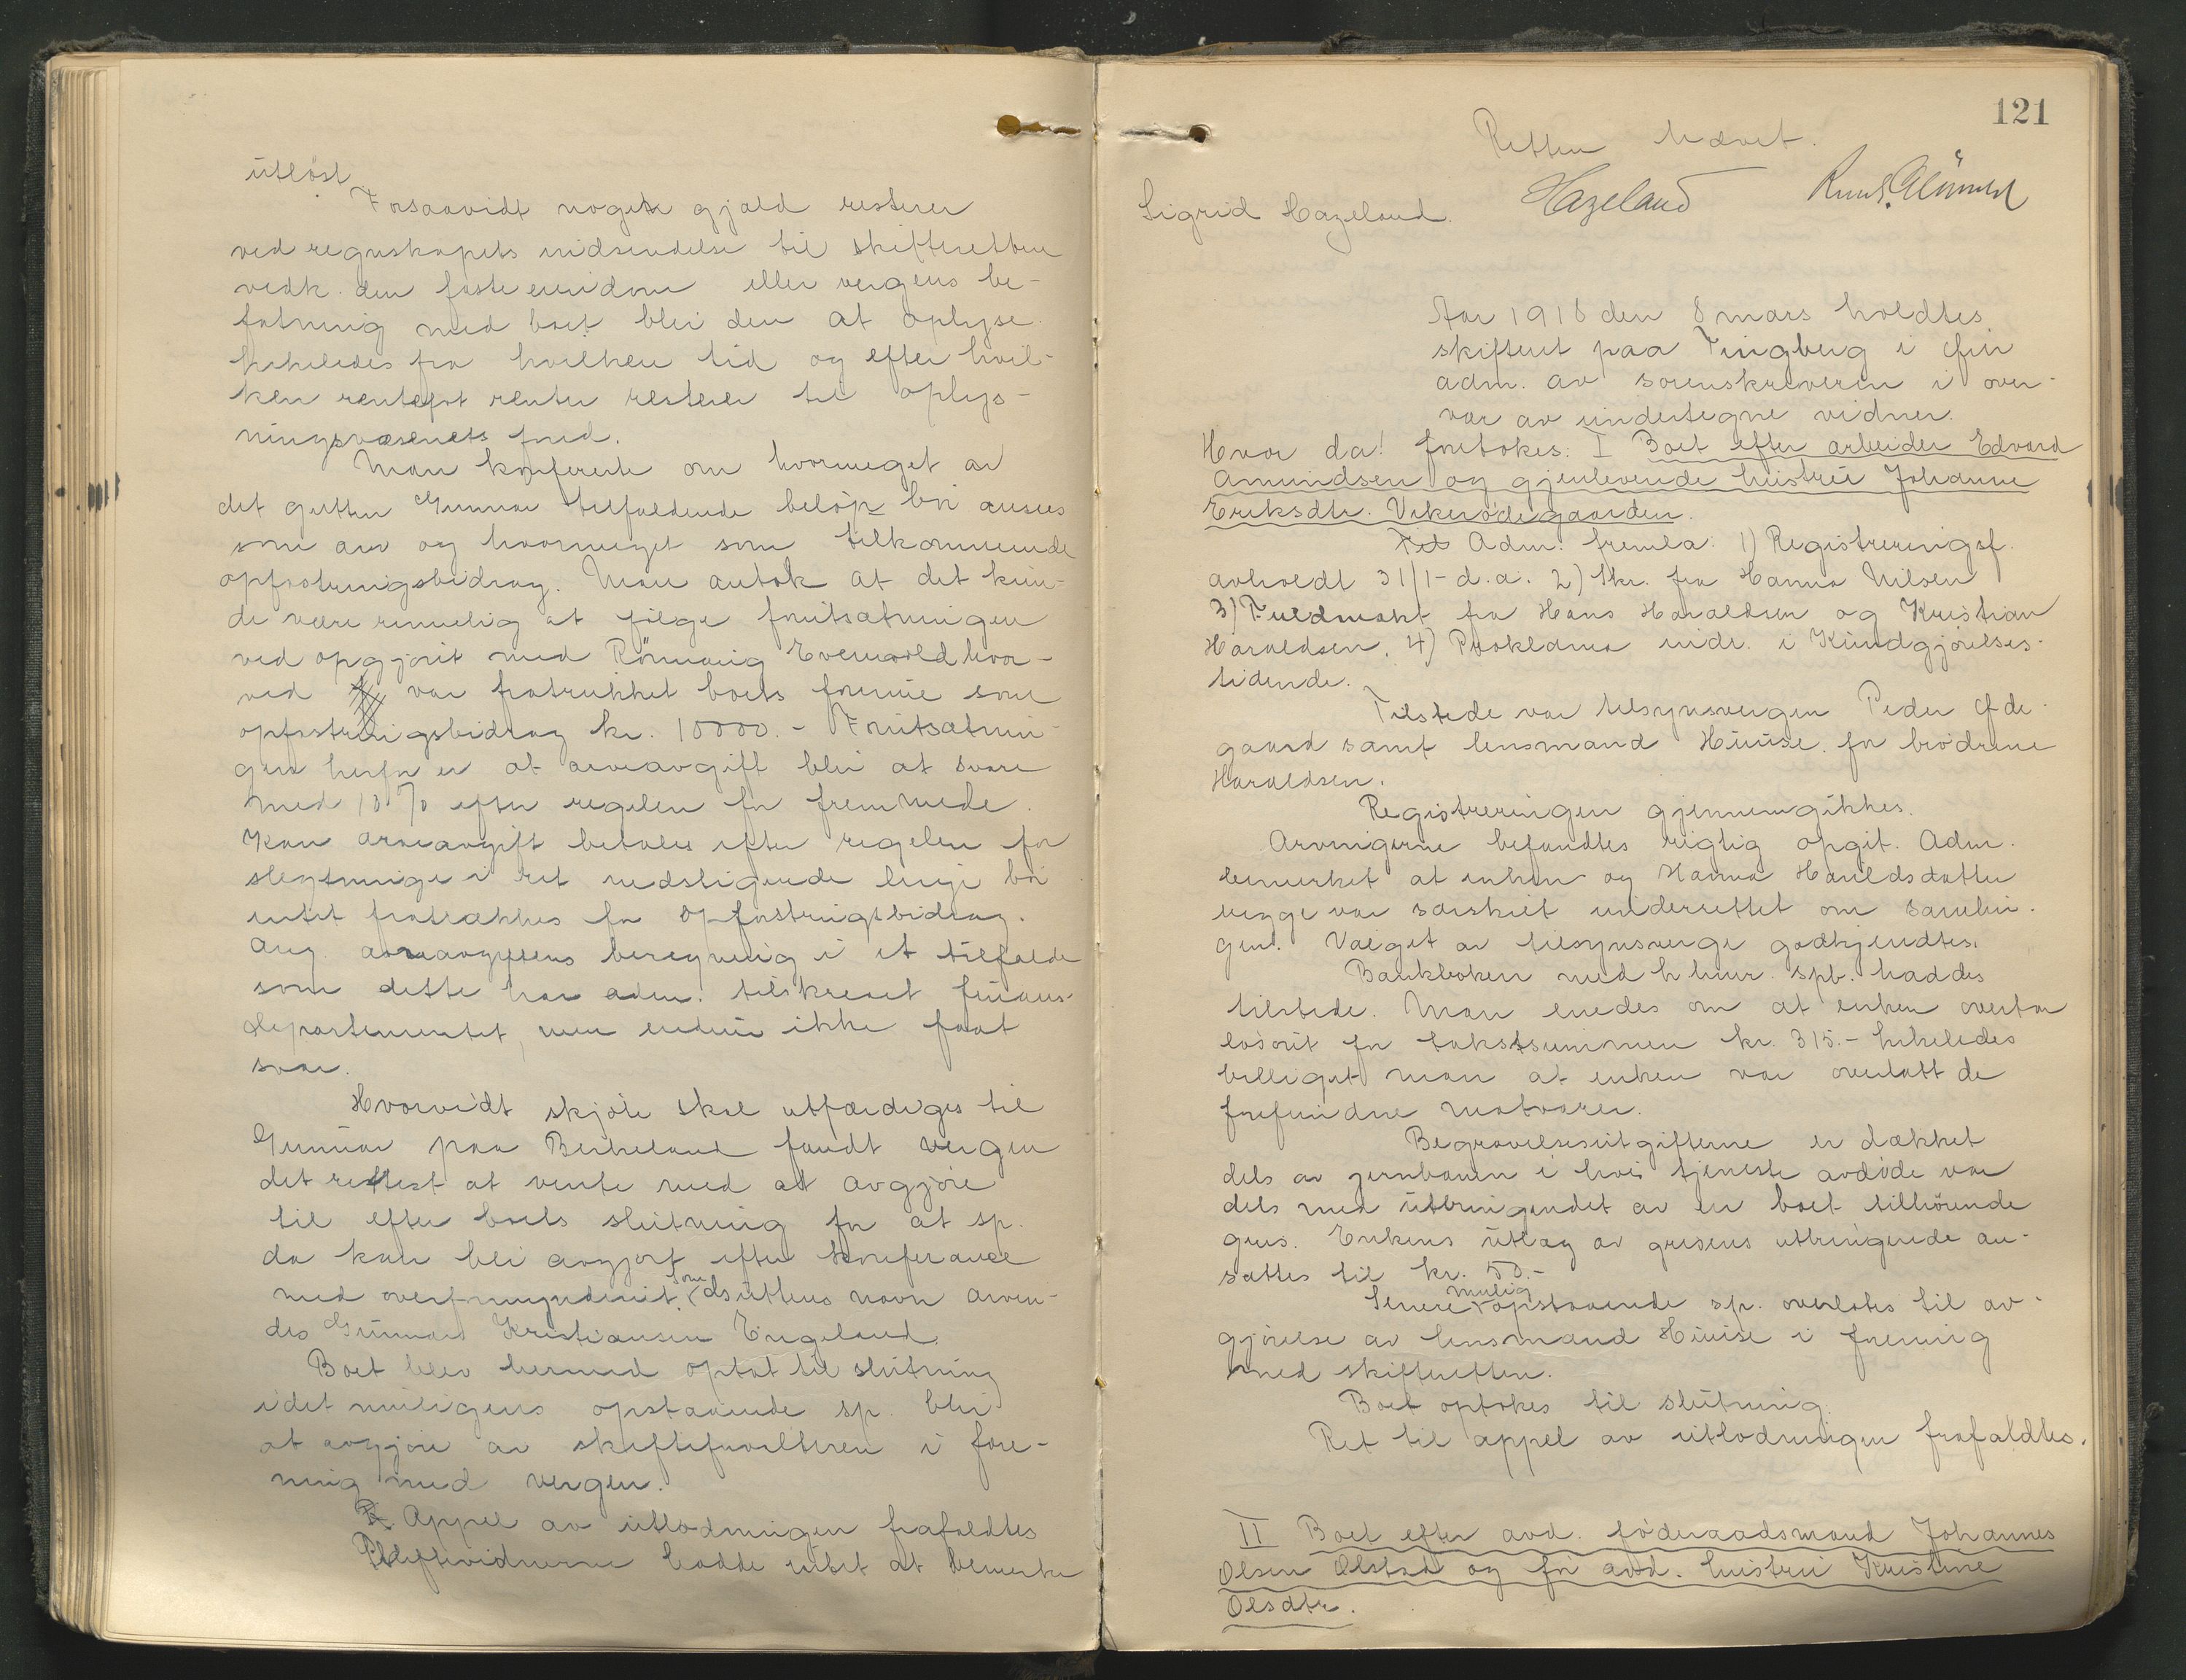 utløst
Forsaavidt nogen gjæld resterer
ved regnskapets indsendelse til skifteretten
vedk. den faste eiendom eller vergens be-
fatning med boet blir den at oplyse
likeledes fra hvilken tid og efter hvil-
ken rentefot renter resterer til oplys-
ningsvæsenets fond.
Man konfererte om hvormeget av
det gutten Gunnar tilfaldende beløp bør ansees
som arv og hvormeget som tilkommende
opfostringsbidrag. Man antok at det kun-
de være rimelig at følge forutsætningen
ved opgjøret med Rønnaug Evenvold hvor-
ved var fratrukket boets formue som
opfostringsbidrag kr. 10000.- Forutsætnin-
gen herfor er at arveavgift blir at svare
med 10 % efter regelen for fremmede.
Kan arveavgift betales efter regelen for
slegtninge i ret nedstigende linje bør
intet fratrækkes for opfostringsbidrag.
Ang. arveavgiftens beregning i et tilfælde
som dette har adm. tilskrevet finans-
departementet, men endnu ikke faat
svar.
Hvorvidt skjøte skal utfærdiges til
Gunnar paa Birkeland fandt vergen
det rettest at vente med at avgjøre
til efter boets slutning for at sp.
da kan bli avgjort efter konferance
med overformynderiet. Som adsuttens navn anven-
des Gunnar Kristiansen Engeland.
Boet blev hermed optat til slutning
idet muligens opstaaende sp. blir
at avgjøre av skifteforvalteren i fore-
ning med vergen.
Appel av utlodningen frafaldtes
Skiftevidnerne hadde intet at bemerke
121
Retten hævet.
Sigrid Hazeland. Hazeland
Aar 1918 den 8 mars holdtes
skifteret paa Tingberg i Øier
adm. av sorenskriveren i over-
vær av undertegne vidner.
Hvor da! foretokes: I Boet efter arbeider Edvard
Amundsen og gjenlevende hustru Johanne
Eriksdtr. Vikerødegaarden.
Adm. fremla: 1) Registreringsf.
avholdt 31/1- d.a. 2) Skr. fra Hanna Nilsen
3) Fuldmakt fra Hans Haraldsen og Kristian
Haraldsen. 4) Proklama indr. i Kundgjørelses-
tidende.
Tilstede var tilsynsvergen Peder Øde-
gaard samt lensmand Huuse for brødrene
Haraldsen.
Registreringen gjennemgikkes.
Arvingerne befandtes rigtig opgit. Adm.
bemerket at enken og Hanna Haraldsdatter
begge var særskilt underrettet om samlin-
gen. Valget av tilsynsverge godkjendtes.
Bankboken med Lillehr. spb. haddes
tilstede. Man enedes om at enken overtar
løsøret for takstsummen kr. 315.- likeledes
billiget man at enken var overlatt de
forefundne matvarer.
Begravelsesutgifterne er dækket
dels av jernbanen i hvis tjeneste avdøde var
dels med utbringendet av en boet tilhørende
gris. Enkens utlæg av grisens utbringende an-
sattes til kr. 50.-
Senere mulig opstaaende sp. overlates til av-
gjørelse av lensmand Huuse i forening
med skifteretten.
Boet optokes til slutning.
Ret til appel av utlodningen frafaldtes.
II Boet efter avd. føderaadsmand Johannes
Olsen Ølstad og før avd. hustru Kristine
Olsdtr.